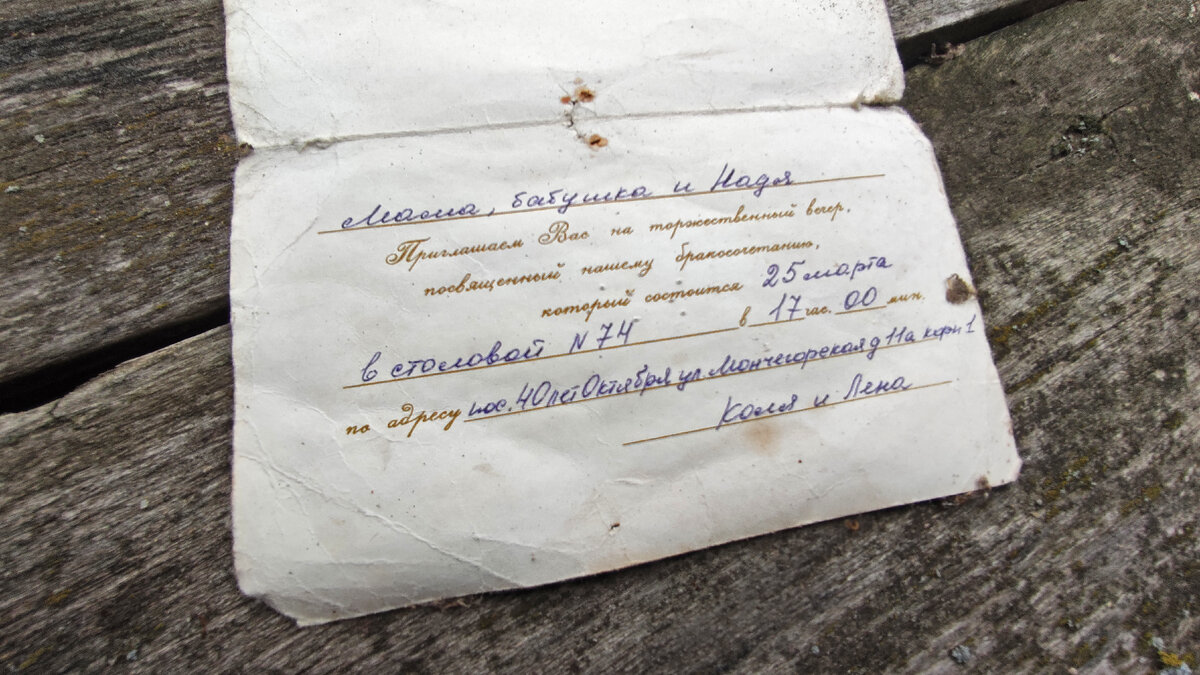 Мама, бабушка и Надя
Приглашаем Вас на торжественный вечер,
посвященный нашему бракосочетанию,
который состоится 25 марта
в столовой N 74 в 17 час. 00 мин.
по адресу пос. 40 лет Октября ул. Мончегорская д 11а корп 1
Коля и Лена